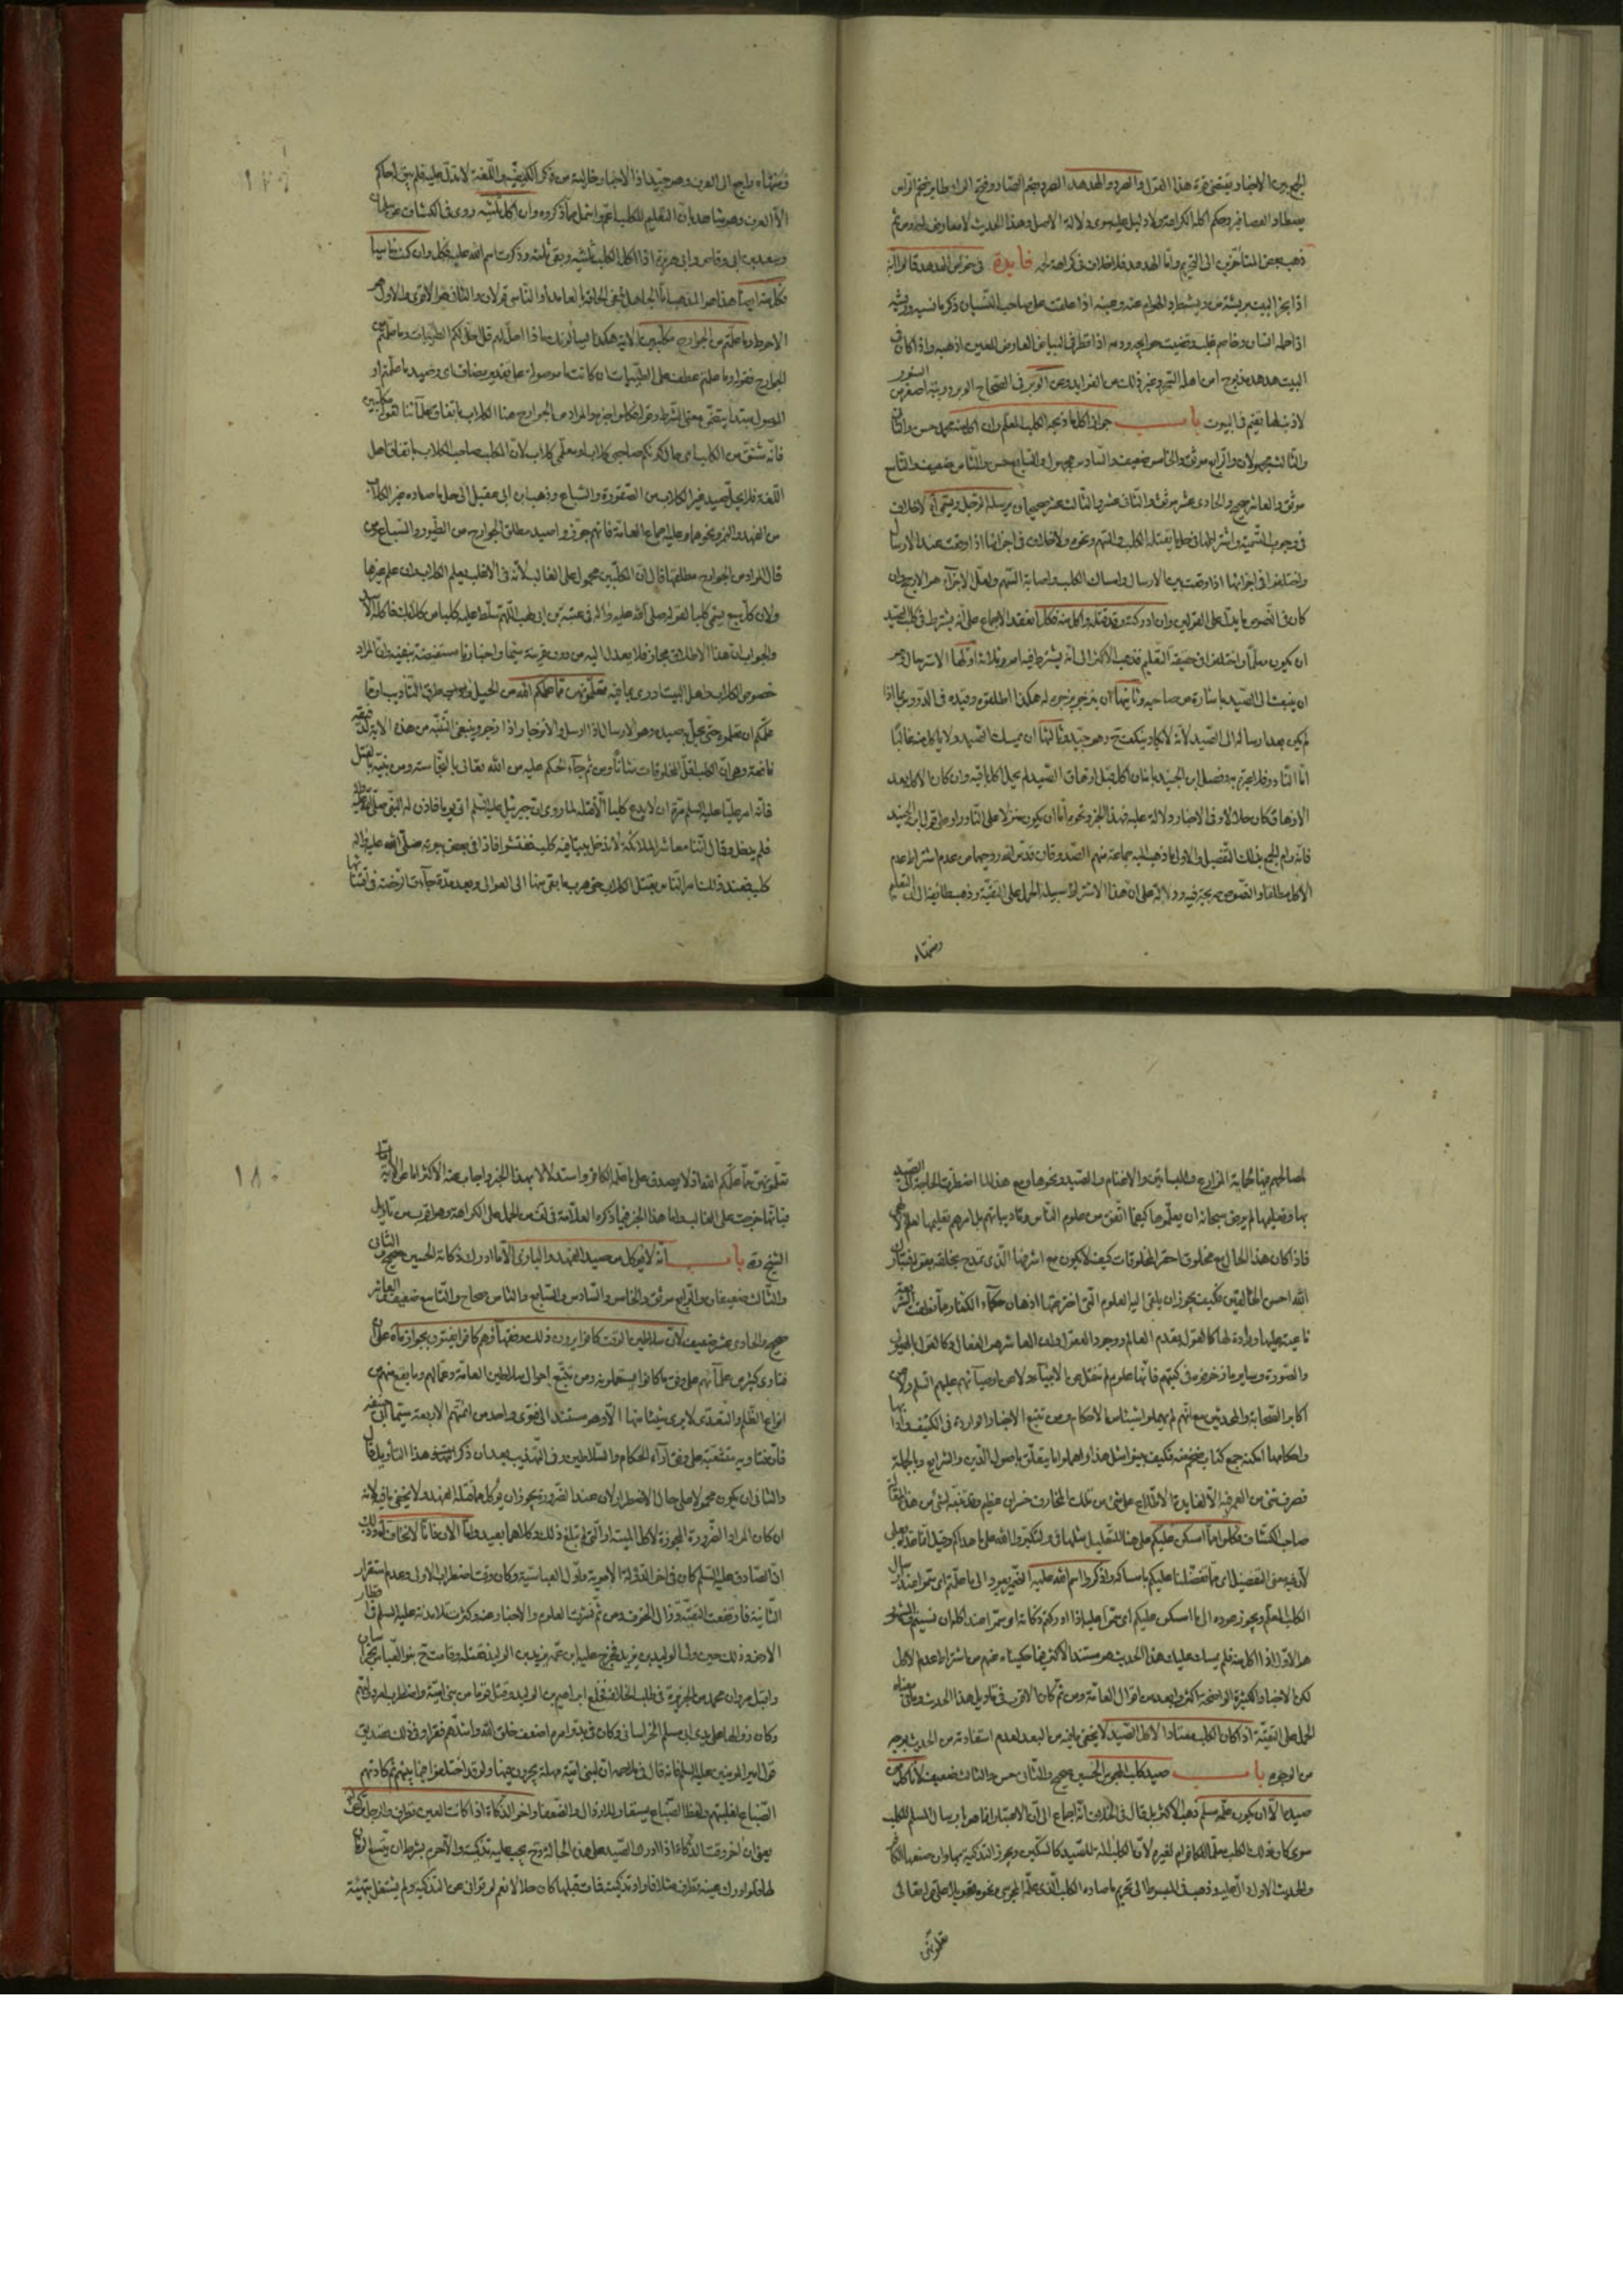 الجمع بين الاخبار ويقتضى قوة هذا القول والصرد والهدهد الصرد بضم الصاد وفتح الراء طاير ضخم الراس
يصطاد العصافير وحكم اكله الكراهة ولا دليل عليه سوى دلالة الاصل وهذا الحديث لا معارض له ومن ثم
ذهب بعض المتاخرين الى التحريم وامّا الهدهد فلا خلاف فى كراهة لحمه فايدة فى خواص الهدهد قالوا انه
اذا بخر البيت بريشة من ريشه طرد الهوام عنه وعينه اذا علقت على صاحب النسيان ذكر ما نسيه وريشه
اذا حمله انسان وخاصم غلب وقضيت حوايجه ودمه اذا قطر فى البياض العارض للعين اذهبه واذا كان فى
البيت هدهد مذبوح امن اهله السحر وغير ذلك من الفوايد وعن الوبر فى الصحاح الوبر دويبة اصغر من السنور
لا ذنب لها تقيم فى البيوت باب جواز اكل ما ذبحه الكلب المعلم وان اكل منه مجهول حسن والثانى
والثالث مجهولان والرابع موثق والخامس ضعيف والسادس مجهول والسابع حسن والثامن ضعيف والتاسع
موثق والعاشر صحيح والحادى عشر موثق والثانى عشر والثالث عشر صحيحان يرسله الرجل ويسمى اه لا خلاف
فى وجوب التسمية واشتراطها فى حل ما يقتله الكلب والسهم ونحوه ولا خلاف فى اجزائها اذا وقعت عند الارسال
واختلفوا فى اجزائها اذا وقعت بين الارسال وامساك الكلب واصابة السهم ولعل الاجزاء هو الارجح وان
كان فى النصوص ما يدل على القولين وان ادركته وقد قتله واكل منه فكل انعقد الاجماع على انه يشترط فى كلب الصيد
ان يكون معلما واختلفوا فى حقيقة التعليم فذهب الاكثر الى انه يشترط فيه امور ثلاثة اولها الاسترسال وهو
ان ينبعث الى الصيد باشارة من صاحبه وثانيها ان ينزجر بزجره له هكذا اطلقوه وقيده فى الدروس بما اذا
لم يكن بعد ارساله الى الصيد لانه لا يكاد ينكف ح وهو جيد وثالثها ان يمسك الصيد ولا ياكل منه غالبا
امّا النادر فلا عبرة به وفصل ابن الجنيد بانه ان اكل قبل ازهاق الصيد لم يحل اكل باقيه وان كان الاكل بعد
الازهاق كان حلالا وفى الاخبار دلالة عليه فهذا الخبر ونحوه امّا ان يكون منزلا على النادر او على قول ابن الجنيد
فانه رام الجمع بذلك التفصيل والاولى ما ذهب اليه جماعة منهم الصدوقان قدس الله روحيهما من عدم اشتراط عدم
الاكل مطلقا والنصوص صريحة فيه ودلالة على ان هذا الاشتراط سبيله الحمل على التقية وذهب طائفة الى ان التعليم
ومنتهاه
ومنتهاه راجع الى العرف وهو جيد اذ الاخبار خالية من ذكر الكيفية واللغة لا تدل عليه فلم يبق لحاكم
الا العرف وهو شاهد بان التعليم للكلب اعم واشمل مما ذكروه وان اكل ثلثيه روى فى الكشاف عن سلمان
وسعد بن ابى وقاص وابى هريرة اذا اكل الكلب ثلثيه وبقى ثلثه وذكرت اسم الله عليه فكل وان كنت ناسيا
فكل منه ايضا هذا هو المذهب امّا الجاهل ففى الحاقه بالعامد او الناسى قولان والثانى هو الاقوى والاول هو
الاحوط وما علمتم من الجوارح مكلبين الاية هكذا يسألونك ماذا احل لهم قل احل لكم الطيبات وما علمتم من
الجوارح فقوله وما علمتم عطف على الطيبات ان كانت ما موصولة على تقدير مضاف اى وصيد ما علمتم او
الموصول مبتدأ يتضمن معنى الشرط وقوله فكلوا خبره والمراد من الجوارح هنا الكلاب باتفاق علمائنا لقوله مكلبين
فانه مشتق من الكلب اى حالكونكم صاحبى كلاب او معلمى كلاب لان المكلب صاحب الكلاب باتفاق اهل
اللغة فلا يحل صيد غير الكلاب من الصقورة والسباع وذهب ابن ابى عقيل الى حل ما صاده غير الكلاب
من الفهد والنمر ونحوهما وعليه اجماع العامة فانهم جوزوا صيد مطلق الجوارح من الطيور والسباع
قال المراد من الجوارح مطلقها قال ان المكلبين محمول على الغالب لانه فى الاغلب يعلم الكلاب وان علم غيرها
ولان كل سبع يسمى كلبا لقوله صلى الله عليه واله فى عتبة بن ابى لهب اللهم سلط عليه كلبا من كلابك فاكله الاسد
والجواب ان هذا الاطلاق مجاز فلا يعدل اليه من دون قرينة سيما واخبارنا مستفيضة بنفيه وان المراد
خصوص الكلاب واهل البيت ادرى بما فيه تعلمونهن مما علمكم الله من الحيل وطرق التاديب او مما
علمكم ان تعلموه حتى يحل صيده وهو الارسال اذا ارسل والانزجار اذا زجر وينبغى التنبه من هذه الاية لدقيقة
نافعة وهى ان الكلب اقل المخلوقات شانا ومن ثم جاء الحكم عليه من الله تعالى بالنجاسة ومن نبيه بالقتل
فانه امر عليا عليه السلم مرة ان لا يدع كلبا الا قتله لما روى ان جبرئيل عليه السلم اتى يوما فاذن له النبى صلى الله عليه واله
فلم يدخل وقال اننا معاشر الملائكة لا ندخل بيتا فيه كلب ففتشوا فاذا فى بعض بيوته صلى الله عليه واله
كلب فعند ذلك امر الناس بقتل الكلاب حتى هرب ما بقى منها الى العوالى وبعد مدة جاءت الرخصة فى اقتنائها
لمصالحهم منها كحماية المزارع والبساتين والاغنام والصيد ونحوها ومع هذا لما اضطرت الحاجة الى الصيد
بها وتعليمها لم يرض سبحانه ان يعلموها كيفما اتفق من علوم الناس وتاديباتهم بل امرهم بتعليمها بعلوم الاهى
فاذا كان هذا الحال مع مخلوق احقر المخلوقات كيف لا يكون مع اشرفها الذى تمدح بخلقه بقوله فتبارك
الله احسن الخالقين فكيف يجوز ان يلقى اليه العلوم التى اخترعتها اذهان حكماء الكفار مما نطقت الشريعة
ناعية عليها ورادة لها كالقول بقدم العالم ووجود العقول وان العاشر هو الفعال وكالقول بالهيولى
والصورة وساير ما زخرفوه فى كتبهم فانها علوم لم تنقل عن الانبياء ولا عن اوصيائهم عليهم السلم ولا عن
اكابر الصحابة والمحدثين مع انهم لم يهملوا شيئا من الاحكام ومن تتبع الاخبار الواردة فى الكنيف وادابها
واحكامها امكنه جمع كتاب ضخم منه فكيف جوزوا مثل هذا واهملوا ما يتعلق باصول الدين والشرايع وبالجملة
فصرف شىء من العمر فيه الا لفايدة الاطلاع على شىء من تلك المخارف خسران عظيم وقد تنبه لشىء من هذا المقال
صاحب الكشاف فكلوا مما امسكن عليكم على هنا للتعليل مثلها فى ولتكبروا الله على ما هداكم وقيل انها متعدية بعلى
لان فيه معنى التفضل اى مما تفضلنا عليكم بامساكه واذكروا اسم الله عليه الضمير يعود الى ما علمتم اى سموا عند ارسال
الكلب المعلم ويجوز عوده الى ما امسكن عليكم اى سموا عليه اذا ادركتم ذكاته او سموا عند اكله ان نسيتم والمشهور
هو الاول اذا اكل منه فلم يمسك عليك هذا الحديث هو مستند الاكثر فيما حكيناه عنهم من اشتراط عدم الاكل
لكن الاخبار الكثيرة الواضحة اكثر وابعد من اقوال العامة ومن ثم كان الاقرب فى تاويل هذا الحديث وما فى معناه
الحمل على التقية اذ كان الكلب معتادا لاكل الصيد لا يخفى ما فيه من البعد لعدم استفادته من الحديث بوجه
من الوجوه باب صيد كلب المجوس الحسين صحيح والثانى حسن والثالث ضعيف لا تاكل من
صيده الا ان يكون علمه مسلم ذهب الاكثر بل قال فى الخلاف انه اجماع الى ان الاعتبار انما هو بارسال المسلم للكلب
سوى كان ذلك الكلب معلما لكافر ام لغيره لان الكلب الة للصيد كالسكين ويجوز التذكية بها وان صنعها الكافر
والحديث الاول دال عليه وذهب فى المبسوط الى تحريم ما صاده الكلب الذى علمه المجوسى ونحوه تعويلا على قوله تعالى
تعلمونهن
تعلمونهن مما علمكم الله اذ لا يصدق على ما علمه الكافر واستدلالا بهذا الخبر واجاب عنه الاكثر امّا عن الاية
فبانها خرجت على الغالب وامّا هذا الخبر فبما ذكره العلامة فى لف من الحمل على الكراهة وهو اقرب من تاويل
الشيخ ره باب انه لا يؤكل من صيد الفهد والبازى الا ما ادرك ذكاته الحسين صحيح والثانى
والثالث ضعيفان والرابع موثق والخامس والسادس والسابع والثامن صحاح والتاسع ضعيف والعاشر
صحيح والحادى عشر ضعيف لان سلاطين الوقت كانوا يرون ذلك وفقهاؤهم كانوا يفتون بجوازه
فتاوى كثير من علمائهم على وفق ما كانوا يستعملونه ومن تتبع احوال سلاطين العامة وعمالهم وما يقع منهم من
انواع الظلم والتعدى لا يرى شيئا منها الا وهو مستند الى فتوى واحد من ائمتهم الاربعة سيما ابى حنيفة
فان فتاويه متشعبة على وفق اراء الحكام والسلاطين وفى التهذيب بعد ان ذكر الشيخ هذا التاويل قال
والثانى ان يكون محمولا على حال الاضطرار لان عند الضرورة يجوز ان يؤكل ما قتله الفهد ولا يخفى ما فيه لانه
ان كان المراد الضرورة المجوزة لاكل الميتة او التى لم تبلغ ذلك وكلاهما بعيد وامّا الان فانا لا نخاف احدا وذلك
ان الصادق عليه السلم كان فى اخر الدولة الاموية واول العباسية وكان وقت اضطراب الاولى وعدم استقرار
الثانية فارتفعت التقية وزال الخوف ومن ثم نشرت العلوم والاخبار عنه وكثرت تلامذته عليه السلم فى اقطار
الارض وذلك حين ولى الوليد بن يزيد فخرج عليه ابن عمه يزيد بن الوليد فقتله وقامت ح بنو العباس بخراسان
واقبل مروان بن محمد من الجزيرة فى طلب الخلافة فخلع ابراهيم بن الوليد وقتل قوما من بنى امية واضطرب امر دولتهم
وكان زوالها على يدى ابى مسلم الخراسانى وكان فى بدو امره اضعف خلق الله واشدهم فقرا وفى ذلك تصديق
قول امير المؤمنين عليه السلم فانه قال فى الملاحم ان لبنى امية مهلة يجرون فيها ولو قد اختلفوا فيما بينهم ثم كادتهم
الضباع لغلبتهم ولفظ الضباع يستعار للارذال والضعفاء واخر الذكاة اذا كانت العين تطرف والرجل تركض
يعنى ان اخر وقت الذكاة اذا ادرك الصيد على هذه الحالة وح يجب عليه تذكيته والا حرم بشرط ان يتسع الزمان
لها فلو ادركه وعينه تطرف مثلا فاراد تذكيته فمات قبلها كان حلالا نعم لو توانى عن التذكية ولم يشتغل بتهيئة
١٨٠